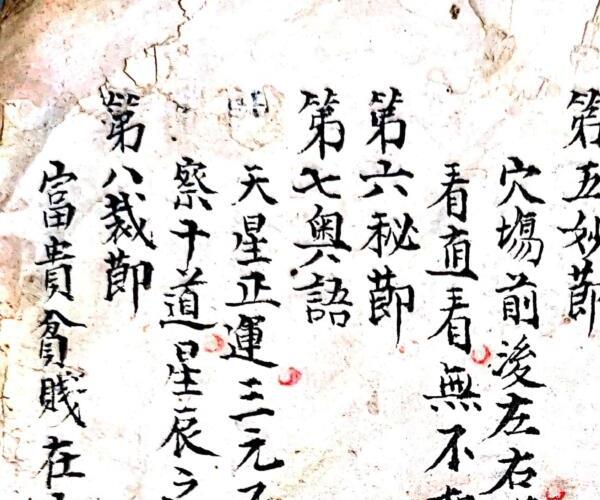 第五妙節
穴塲前後左右
看直看無不
第六秘節
第七奥語
天星正運三元不
察干道星辰之
第八裁節
富貴貧賤在